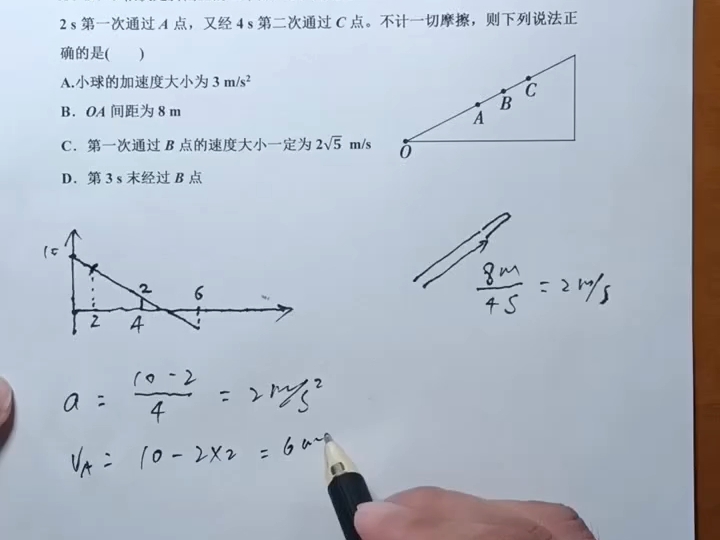 2 s 第一次通过 A 点，又经 4 s 第二次通过 C 点。不计一切摩擦，则下列说法正
确的是(　　)
A.小球的加速度大小为 3 m/s²
B．OA 间距为 8 m
C．第一次通过 B 点的速度大小一定为 2√5 m/s
D．第 3 s 末经过 B 点
O
A
B
C
2
6
2
4
8m
4s
= 2m/s
a = 10-2 / 4 = 2m/s²
V_A = 10-2×2 = 6m